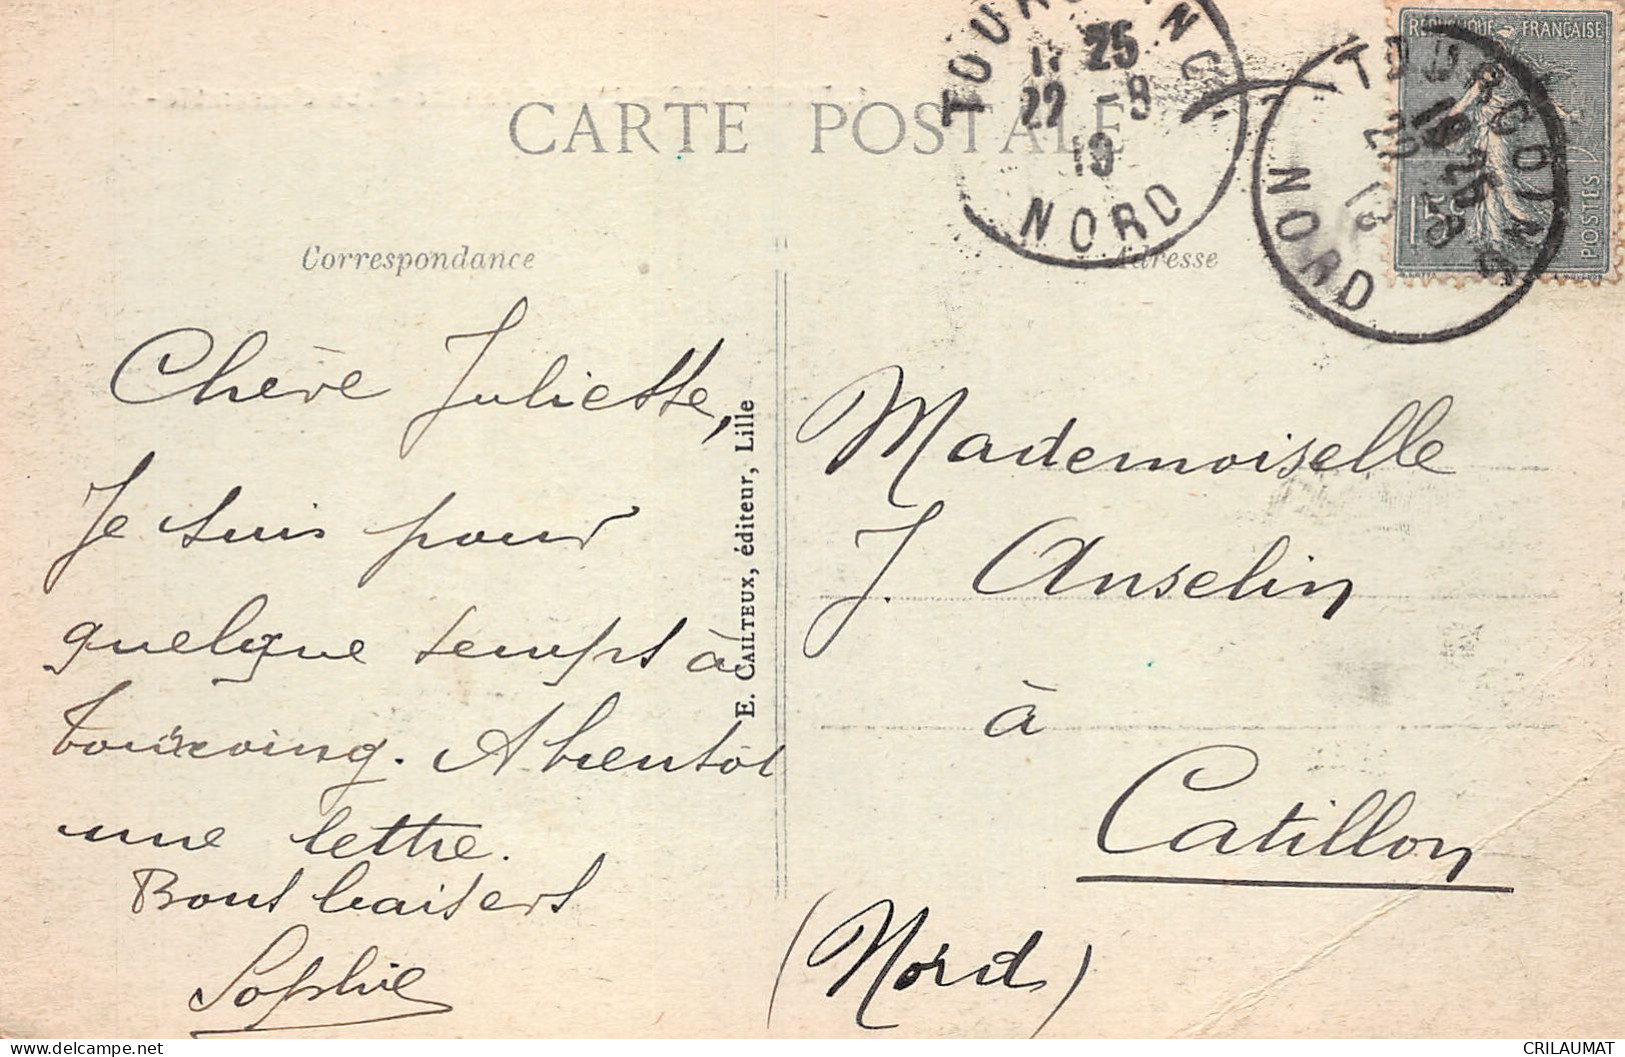 CARTE POSTALE
TOURCOING
17 25
22 -8
19
NORD
TOURCOING
NORD
REPUBLIQUE FRANÇAISE
15c
POSTES
Correspondance
Adresse
Chère Juliette,
Je suis pour
quelque temps à
Tourcoing. A bientôt
une lettre.
Bons baisers
Sophie
E. CAILTEUX, éditeur, Lille
Mademoiselle
J. Anselin
à
Catillon
(Nord)
delcampe.net
CRILAUMAT